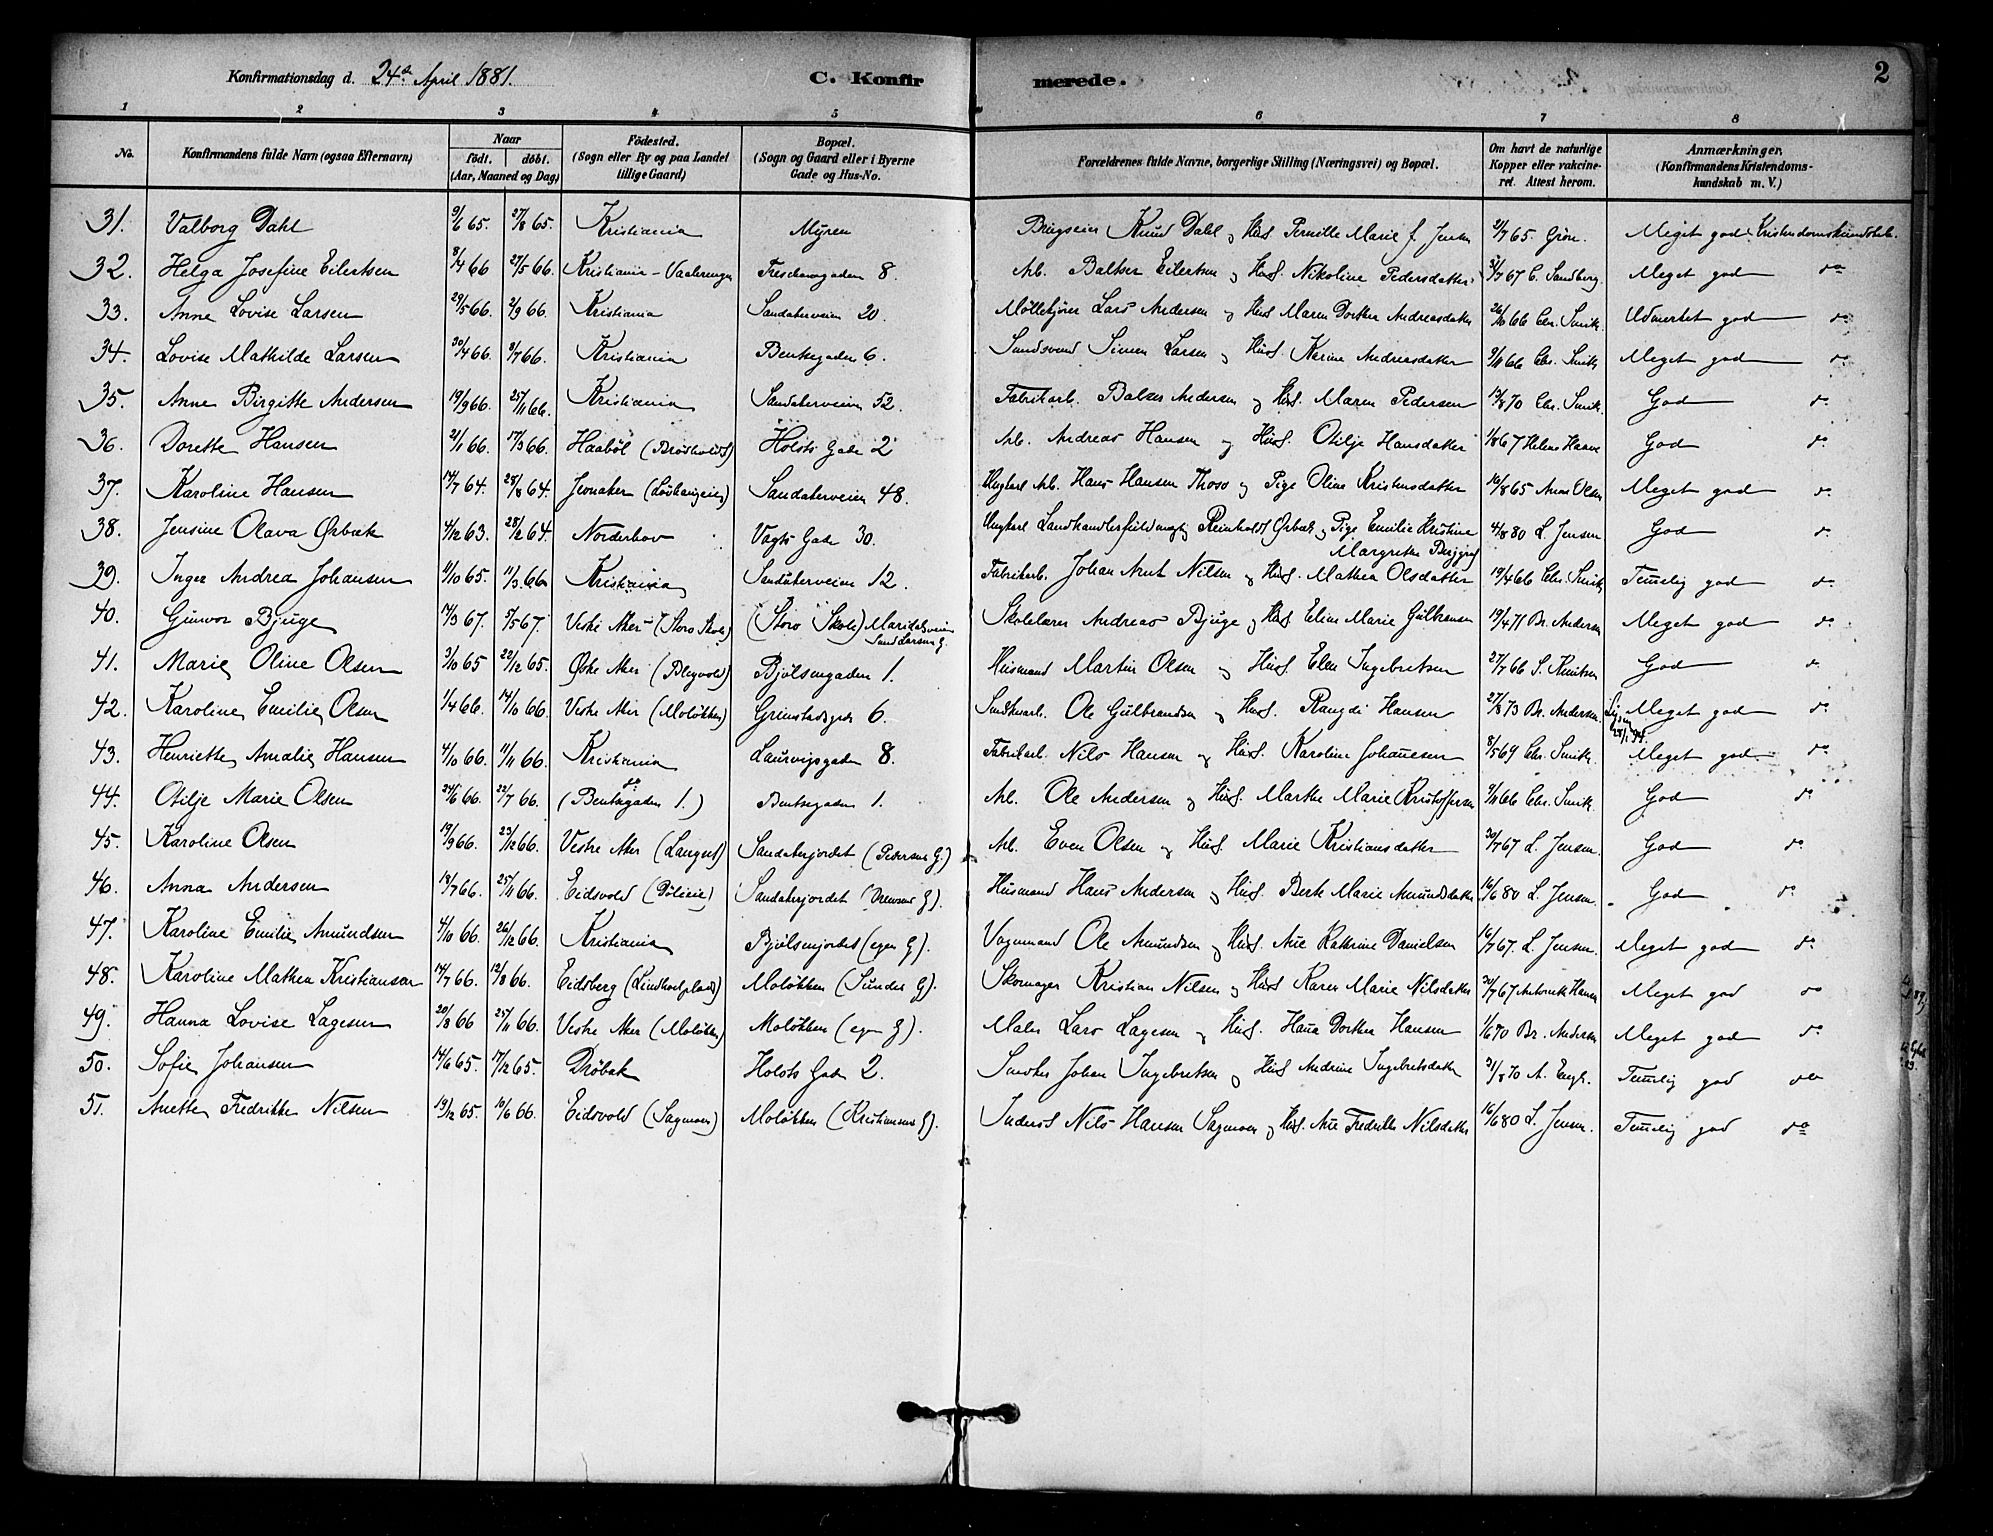 Konfirmationsdag d. 24de April 1881. C. Konfirmerede. 2
1 2 3 4 5 6 7 8
No. Konfirmandens fulde Navn (ogsaa Efternavn) Naar födt. döbt. (Aar, Maaned og Dag) Födested. (Sogn eller By og paa Landet tillige Gaard) Bopæl. (Sogn og Gaard eller i Byerne Gade og Hus-No. Forældrenes fulde Navne, borgerlige Stilling (Næringsvei) og Bopæl. Om havt de naturlige Kopper eller vakcineret. Attest herom. Anmærkninger, (Konfirmandens Kristendomskundskab m. V.)
31. Valborg Dahl 9/6 65. 27/8 65. Kristiania Myren Brugseier Knud Dahl og Hus. Pernille Marie f. Jensen 21/7 65. Grön. Meget god Kristendomskundskab.
32. Helga Josefine Eilertsen 8/4 66 27/5 66. Kristiania - Vaalerengen Treschowsgaden 8. Arb. Baltser Eilertsen og Hus. Nikoline Pedersdatter 31/7 67 C. Sandberg. Meget god do
33. Anne Lovise Larsen 29/5 66. 2/9 66. Kristiania Sandakerveien 20. Möllekjörer Lars Andersen og Hus. Maren Dorthea Andreasdatter 26/10 66 Chr. Smith. Udmerket god do
34. Lovise Mathilde Larsen 30/4 66. 8/7 66. Kristiania Bentsegaden 6. Simen Larsen og Hus. Karine Andreasdatter 9/11 66 Chr. Smith Meget god do
35. Anne Birgitte Andersen 19/9 66. 25/11 66. Kristiania Sandakerveien 52. Fabrikarb. Balzer Andersen og Hus. Maren Pedersen 13/8 70 Chr. Smith. God do
36. Dorette Hansen 21/1 66. 17/3 66. Haaböl Holsts Gade 2 Arb. Andreas Hansen og Hus. Otilje Hansdatter 1/8 67 Helene Haave God do
37. Karoline Hansen 14/7 64. 28/8 64. Jevnaker Sandakerveien 48. Ungkarl Arb. Hans Hansen Thoso og Pige Oline Kristensdatter 16/8 65 Anne Olsen Meget god do
38. Jensine Olava Ørbæk 4/12 63. 28/2 64. Norderhov Vogts Gade 30. Ungkarl Landhandlerfuldmægtig Reinholdt Ørbæk og Pige Emilie Kristine Margrethe 4/8 80 L. Jensen God do
39. Inger Andrea Johansen 11/10 65. 11/3 66 Kristiania Sandakerveien 12. Fabrikarb. Johan Arnt Nilsen og Hus. Mathea Olsdatter 19/4 66 Chr. Smith Temelig god do
40. Gunvor Bjuge 14/3 67. 5/5 67. Vestre Aker (Storo Skole) (Storo Skole) Maridalsveien Sand Larsens G. Skolelærer Andreas Bjuge og Hus. Eline Marie Gulbransen 19/4 71 Br. Andersen Meget god do
41. Marie Oline Olsen 3/10 65 22/12 65. Østre Aker Bjölsengaden 1. Husmand Martin Olsen og Hus. Elen Ingebretsen 27/7 66 S. Knutsen God do
42. Karoline Emilie Olsen 1/4 66. 14/10 66. Vestre Aker (Molökken) Grimstadsgd 6. Ole Gulbrandsen og Hus. Rangdi Hansen 27/8 73 Br. Andersen. 28/1 94. Meget god do
43. Henriette Amalie Hansen 4/10 66. 11/11 66. Kristiania Laurvigsgaden 8. Fabrikarb. Nils Hansen og Hus. Karoline Johannesen 8/5 69 Chr. Smith. Meget god do
44. Otilje Marie Olsen 24/6 66. 22/7 66. do (Bentsegaden 1.) Bentsegaden 1. Arb. Ole Andersen og Hus. Marthe Marie Kristoffersen 9/11 66 Chr. Smith. God do
45. Karoline Olsen 19/9 66. 23/12 66. Vestre Aker Sandakerjordet (Pedersens G.) Arb. Even Olsen og Hus. Marie Kristiansdatter 30/7 67 L. Jensen. God do
46. Anna Andersen 18/7 66. 25/11 66. Eidsvold Sandakerjordet Husmand Hans Andersen og Hus. Berte Marie Amundsdatter 16/6 80 L. Jensen. God do
47. Karoline Emilie Amundsen 4/10 66. 26/12 66. Kristiania Bjölsenjordet (egen G). Vognmand Ole Amundsen og Hus. Ane Kathrine Danielsen 16/7 67. L. Jensen. Meget god do
48. Karoline Mathea Kristiansen 14/7 66. 12/8 66. Eidsberg Molökken (Sunder G). Skomager Kristian Nilsen og Hus. Karen Marie Nilsdatter 30/7 67 Hansen Meget god do
49. Hanna Lovise Lagesen 20/8 66 25/11 66. Vestre Aker (Molökken) Molökken (egen G). Maler Lars Lagesen og Hus. Hana Dorthea Hansen 1/6 70 Br. Andersen Meget god do
50. Sofie Johansen 14/6 65. 17/12 65. Dröbak Holsts Gade 2. Snedker Johan Ingebretsen og Hus. Andrine Ingebretsdatter 31/8 70 A. Engh. Temelig god do
51. Anette Fredrikke Nilsen 19/12 65. 10/6 66. Eidsvold (Sagmoen) Molökken (Kristiansens G). Inderst Nils Hansen Sagmoen og Hus. Ane Fredrikke Nilsdatter 16/6 80 L. Jensen. Temelig god do